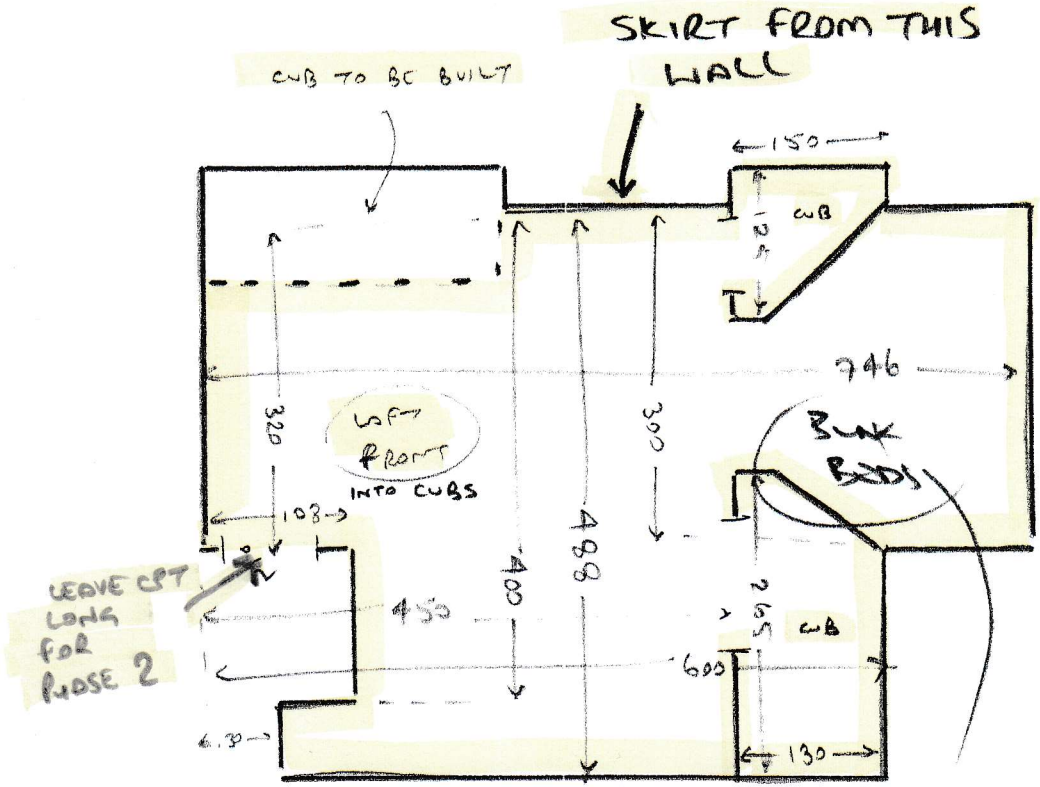 SKIRT FROM THIS
WALL
CUB TO BE BUILT
150
CUB
125
746
320
LOFT
FRONT
INTO CUBS
300
BUNK
BEDS
103
488
400
LEAVE CPT
LONG
FOR
PHASE 2
450
265
CUB
600
130